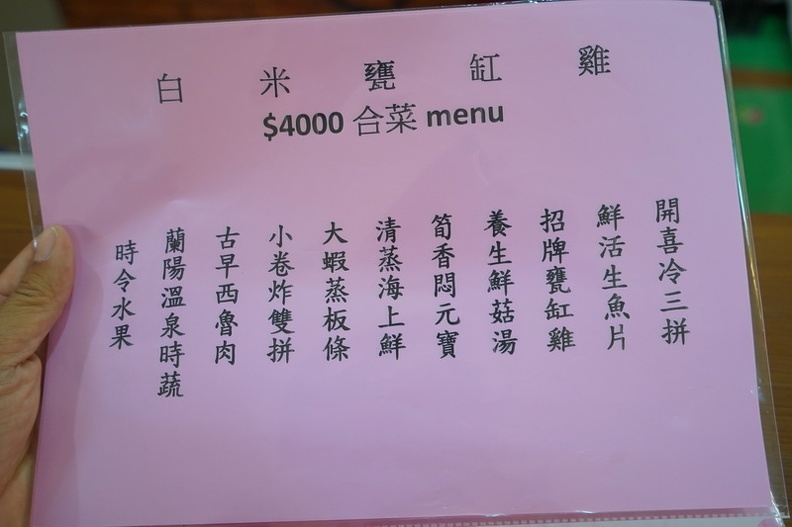 白米甕缸雞
$4000 合菜 menu
開喜冷三拼
鮮活生魚片
招牌甕缸雞
養生鮮菇湯
筍香悶元寶
清蒸海上鮮
大蝦蒸板條
小卷炸雙拼
古早西魯肉
蘭陽溫泉時蔬
時令水果